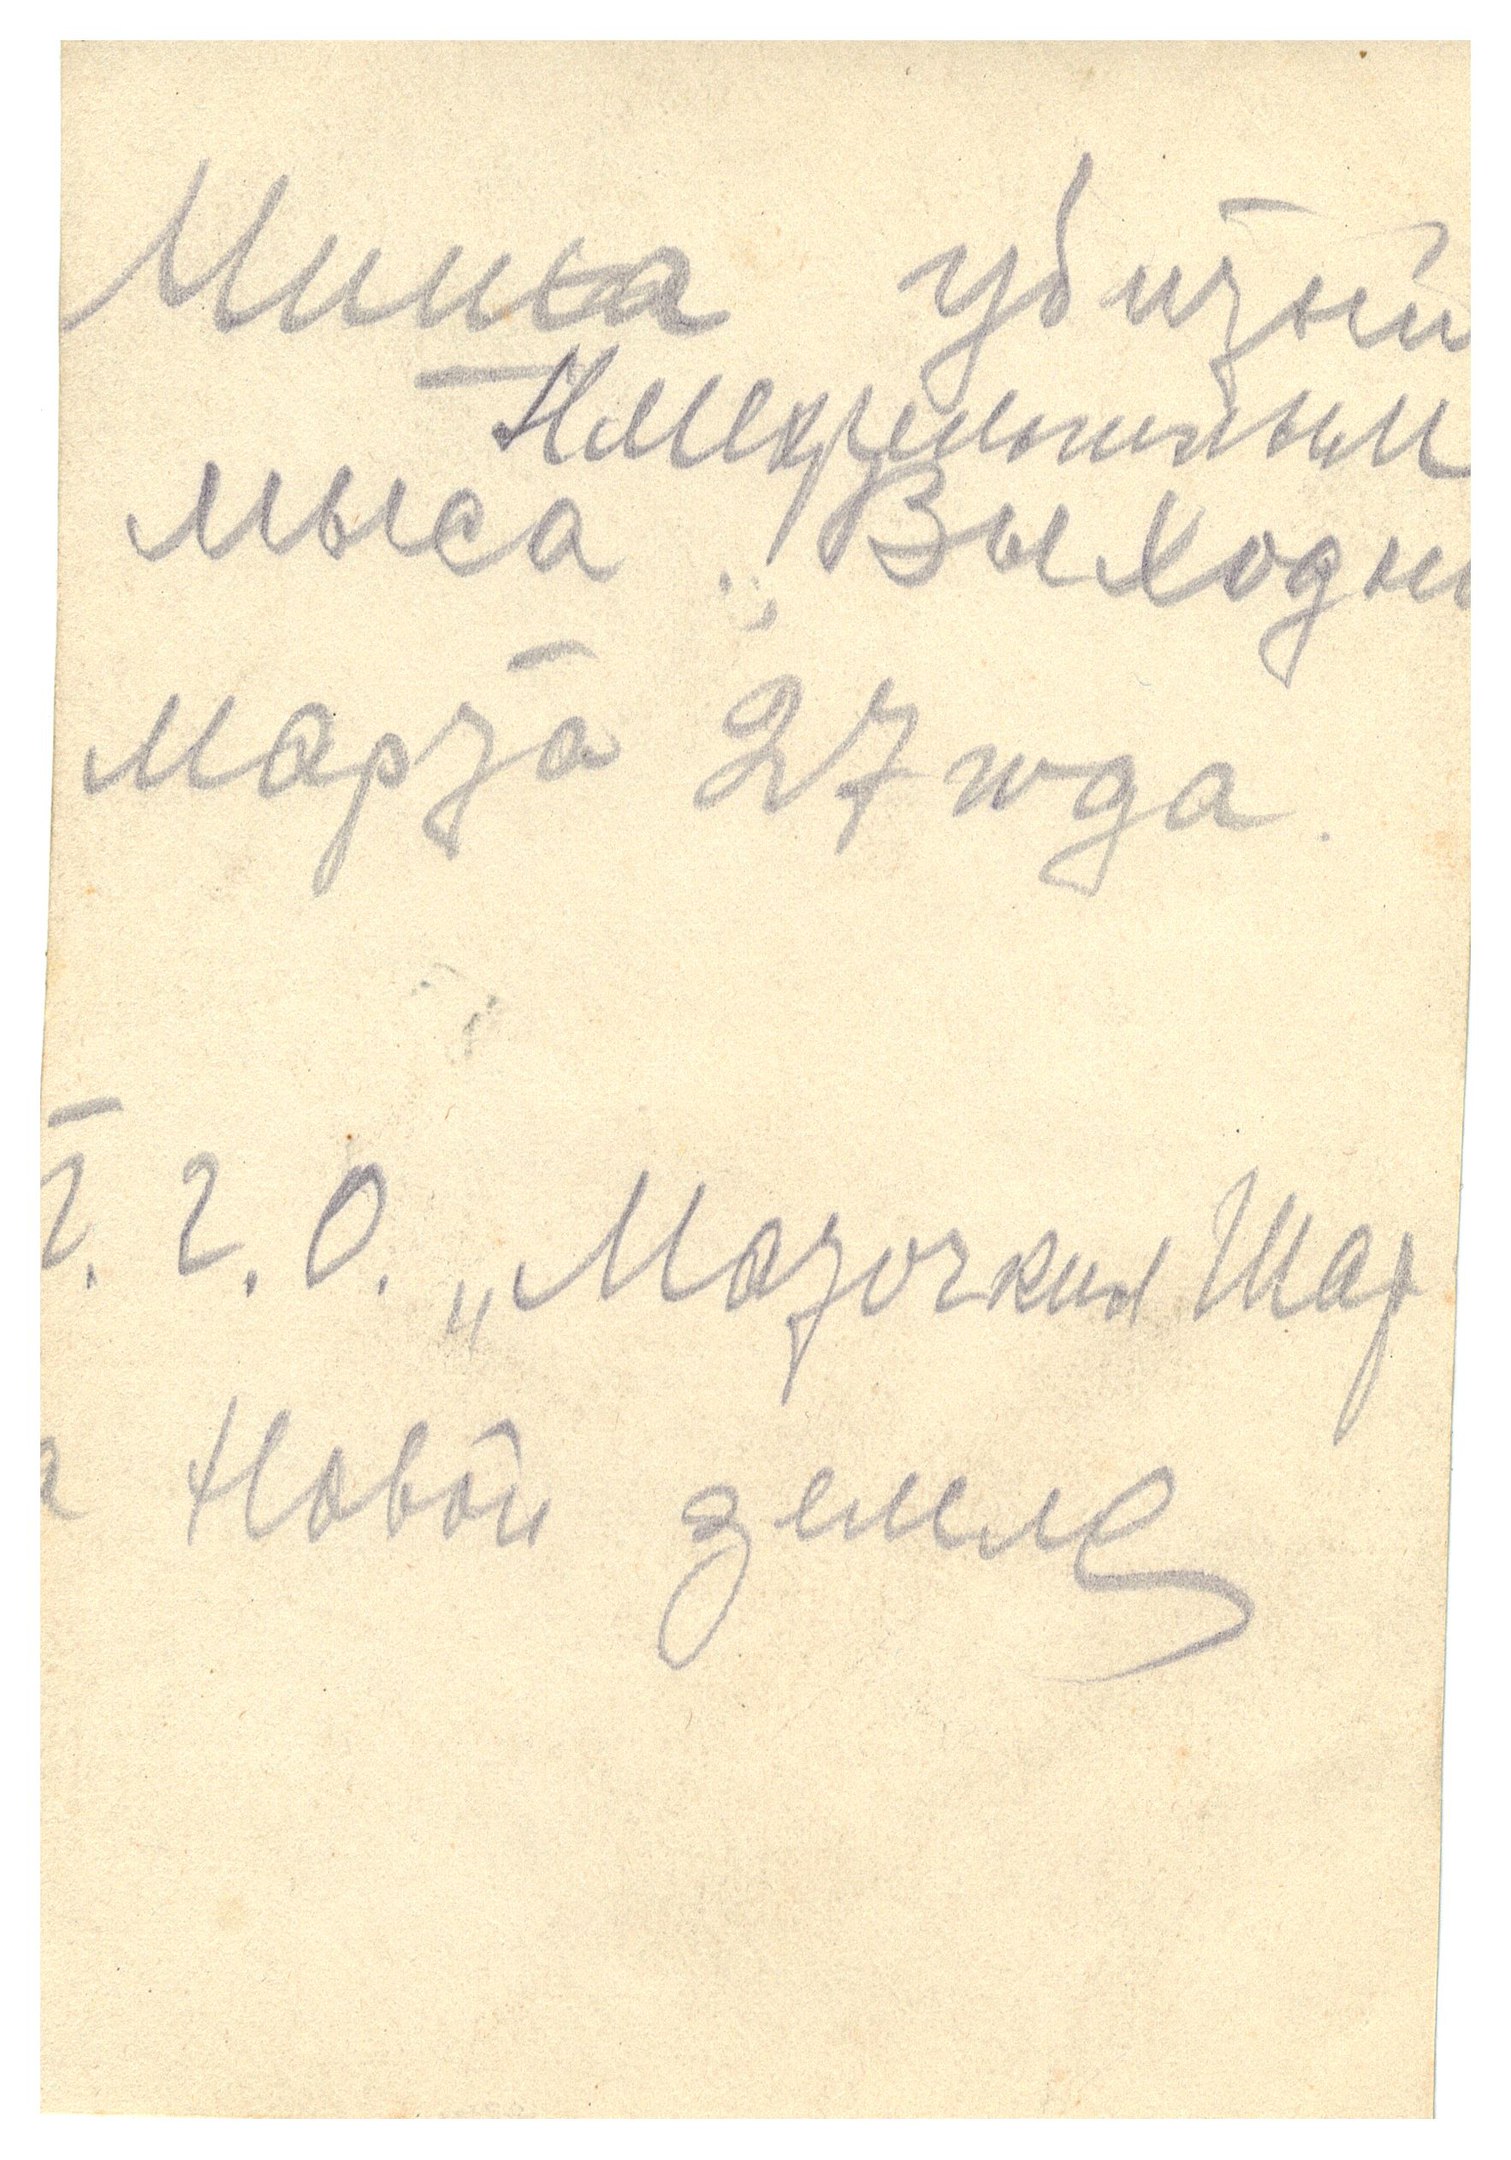 Мишка убитый
мыса „Выходны
марта 27 года.
Г. Г. О. „Маточкин Шар
а Новой земле